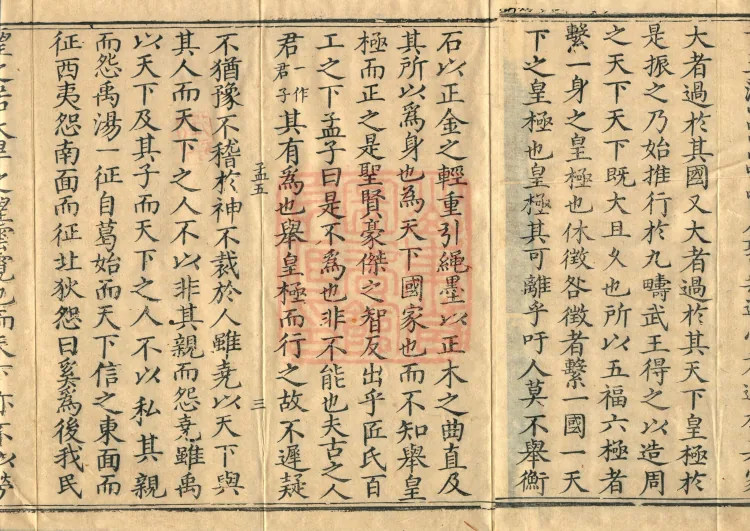 大者過於其國又大者過於其天下皇極於
是振之乃始推行於九疇武王得之以造周
之天下天下既大且久也所以五福六極者
繫一身之皇極也休徵咎徵者繫一國一天
下之皇極也皇極其可離乎吁人莫不舉衡
石以正金之輕重引繩墨以正木之曲直及
其所以為身也為天下國家也而不知舉皇
極而正之是聖賢豪傑之智反出乎匠氏百
工之下孟子曰是不為也非不能也夫古之人
君一作君子其有為也舉皇極而行之故不遲疑
孟五
三
不猶豫不稽於神不裁於人雖堯以天下與
其人而天下之人不以非其親而怨堯雖禹
以天下及其子而天下之人不以私其親
而怨禹湯一征自葛始而天下信之東面而
征西夷怨南面而征北狄怨曰奚為後我民